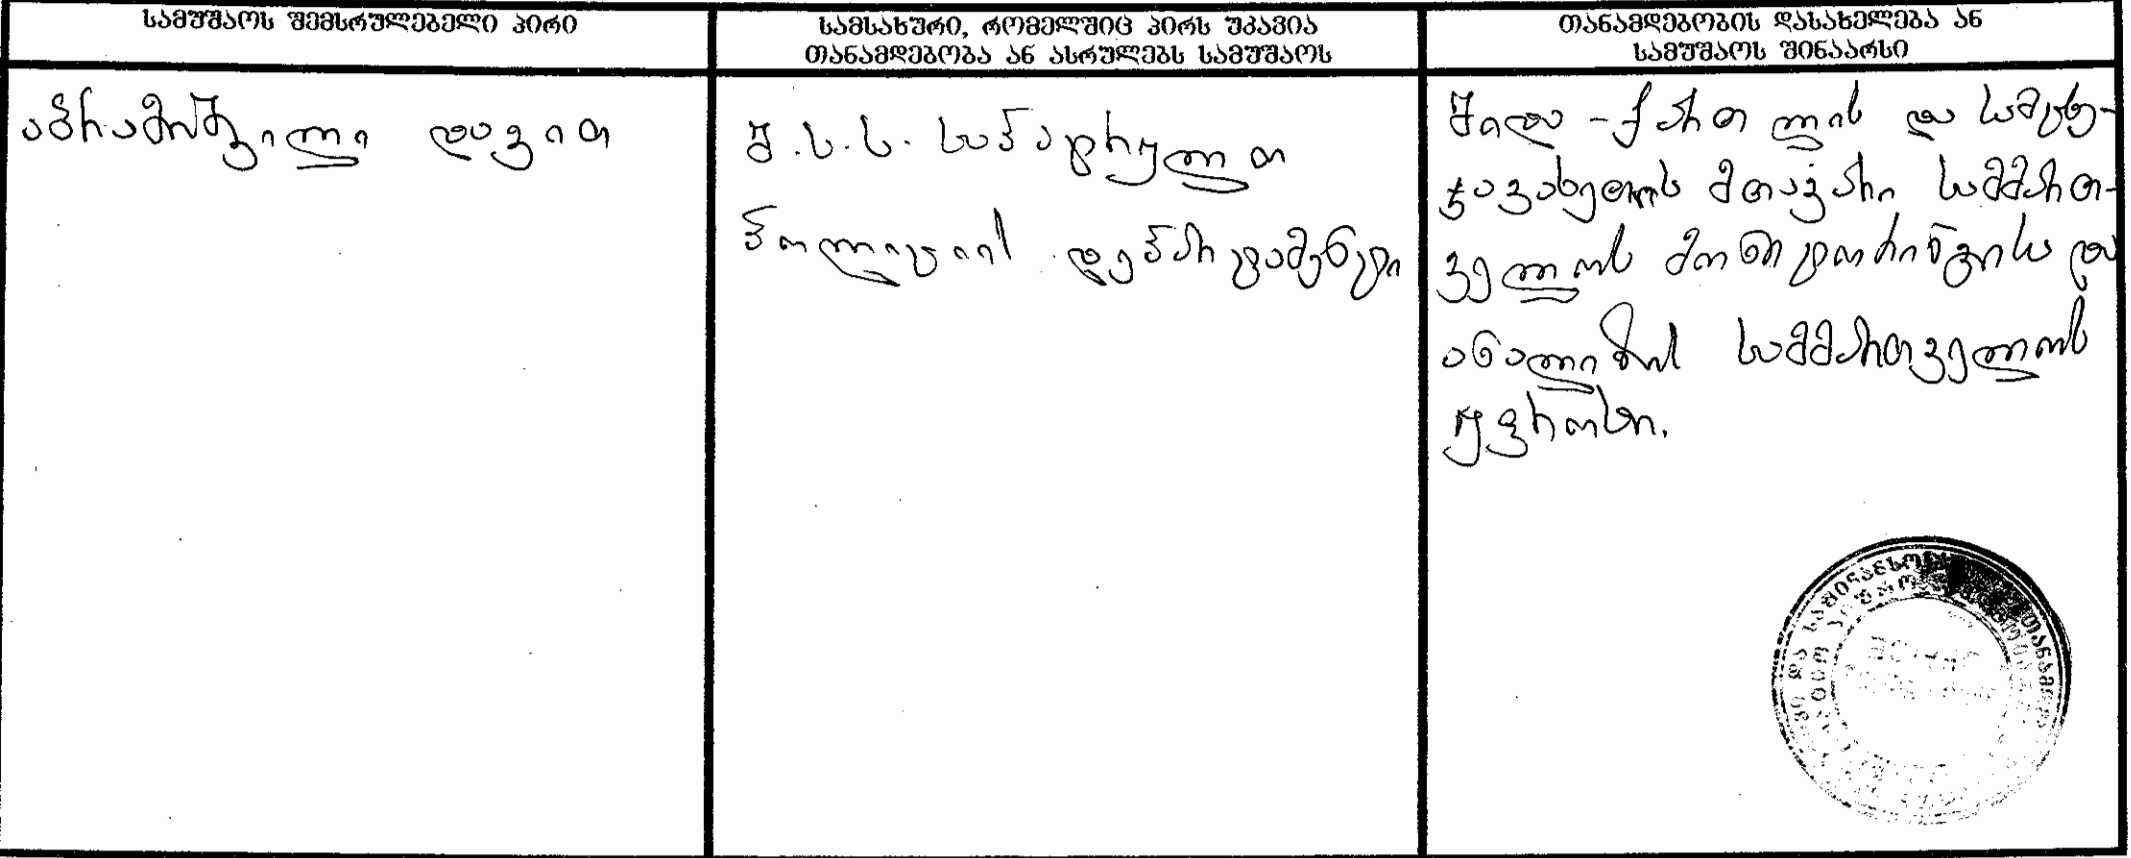 სამუშაოს შემსრულებელი პირი
სამსახური, რომელშიც პირს უკავია
თანამდებობა ან ასრულებს სამუშაოს
თანამდებობის დასახელება ან
სამუშაოს შინაარსი
აბრამიშვილი დავით
შ.ს.ს. საპატრულო
პოლიციის დეპარტამენტი
შიდა-ქართლის და სამცხე-
ჯავახეთის მთავარი სამმართ-
ველოს მონიტორინგისა და
ანალიზის სამმართველოს
უფროსი.